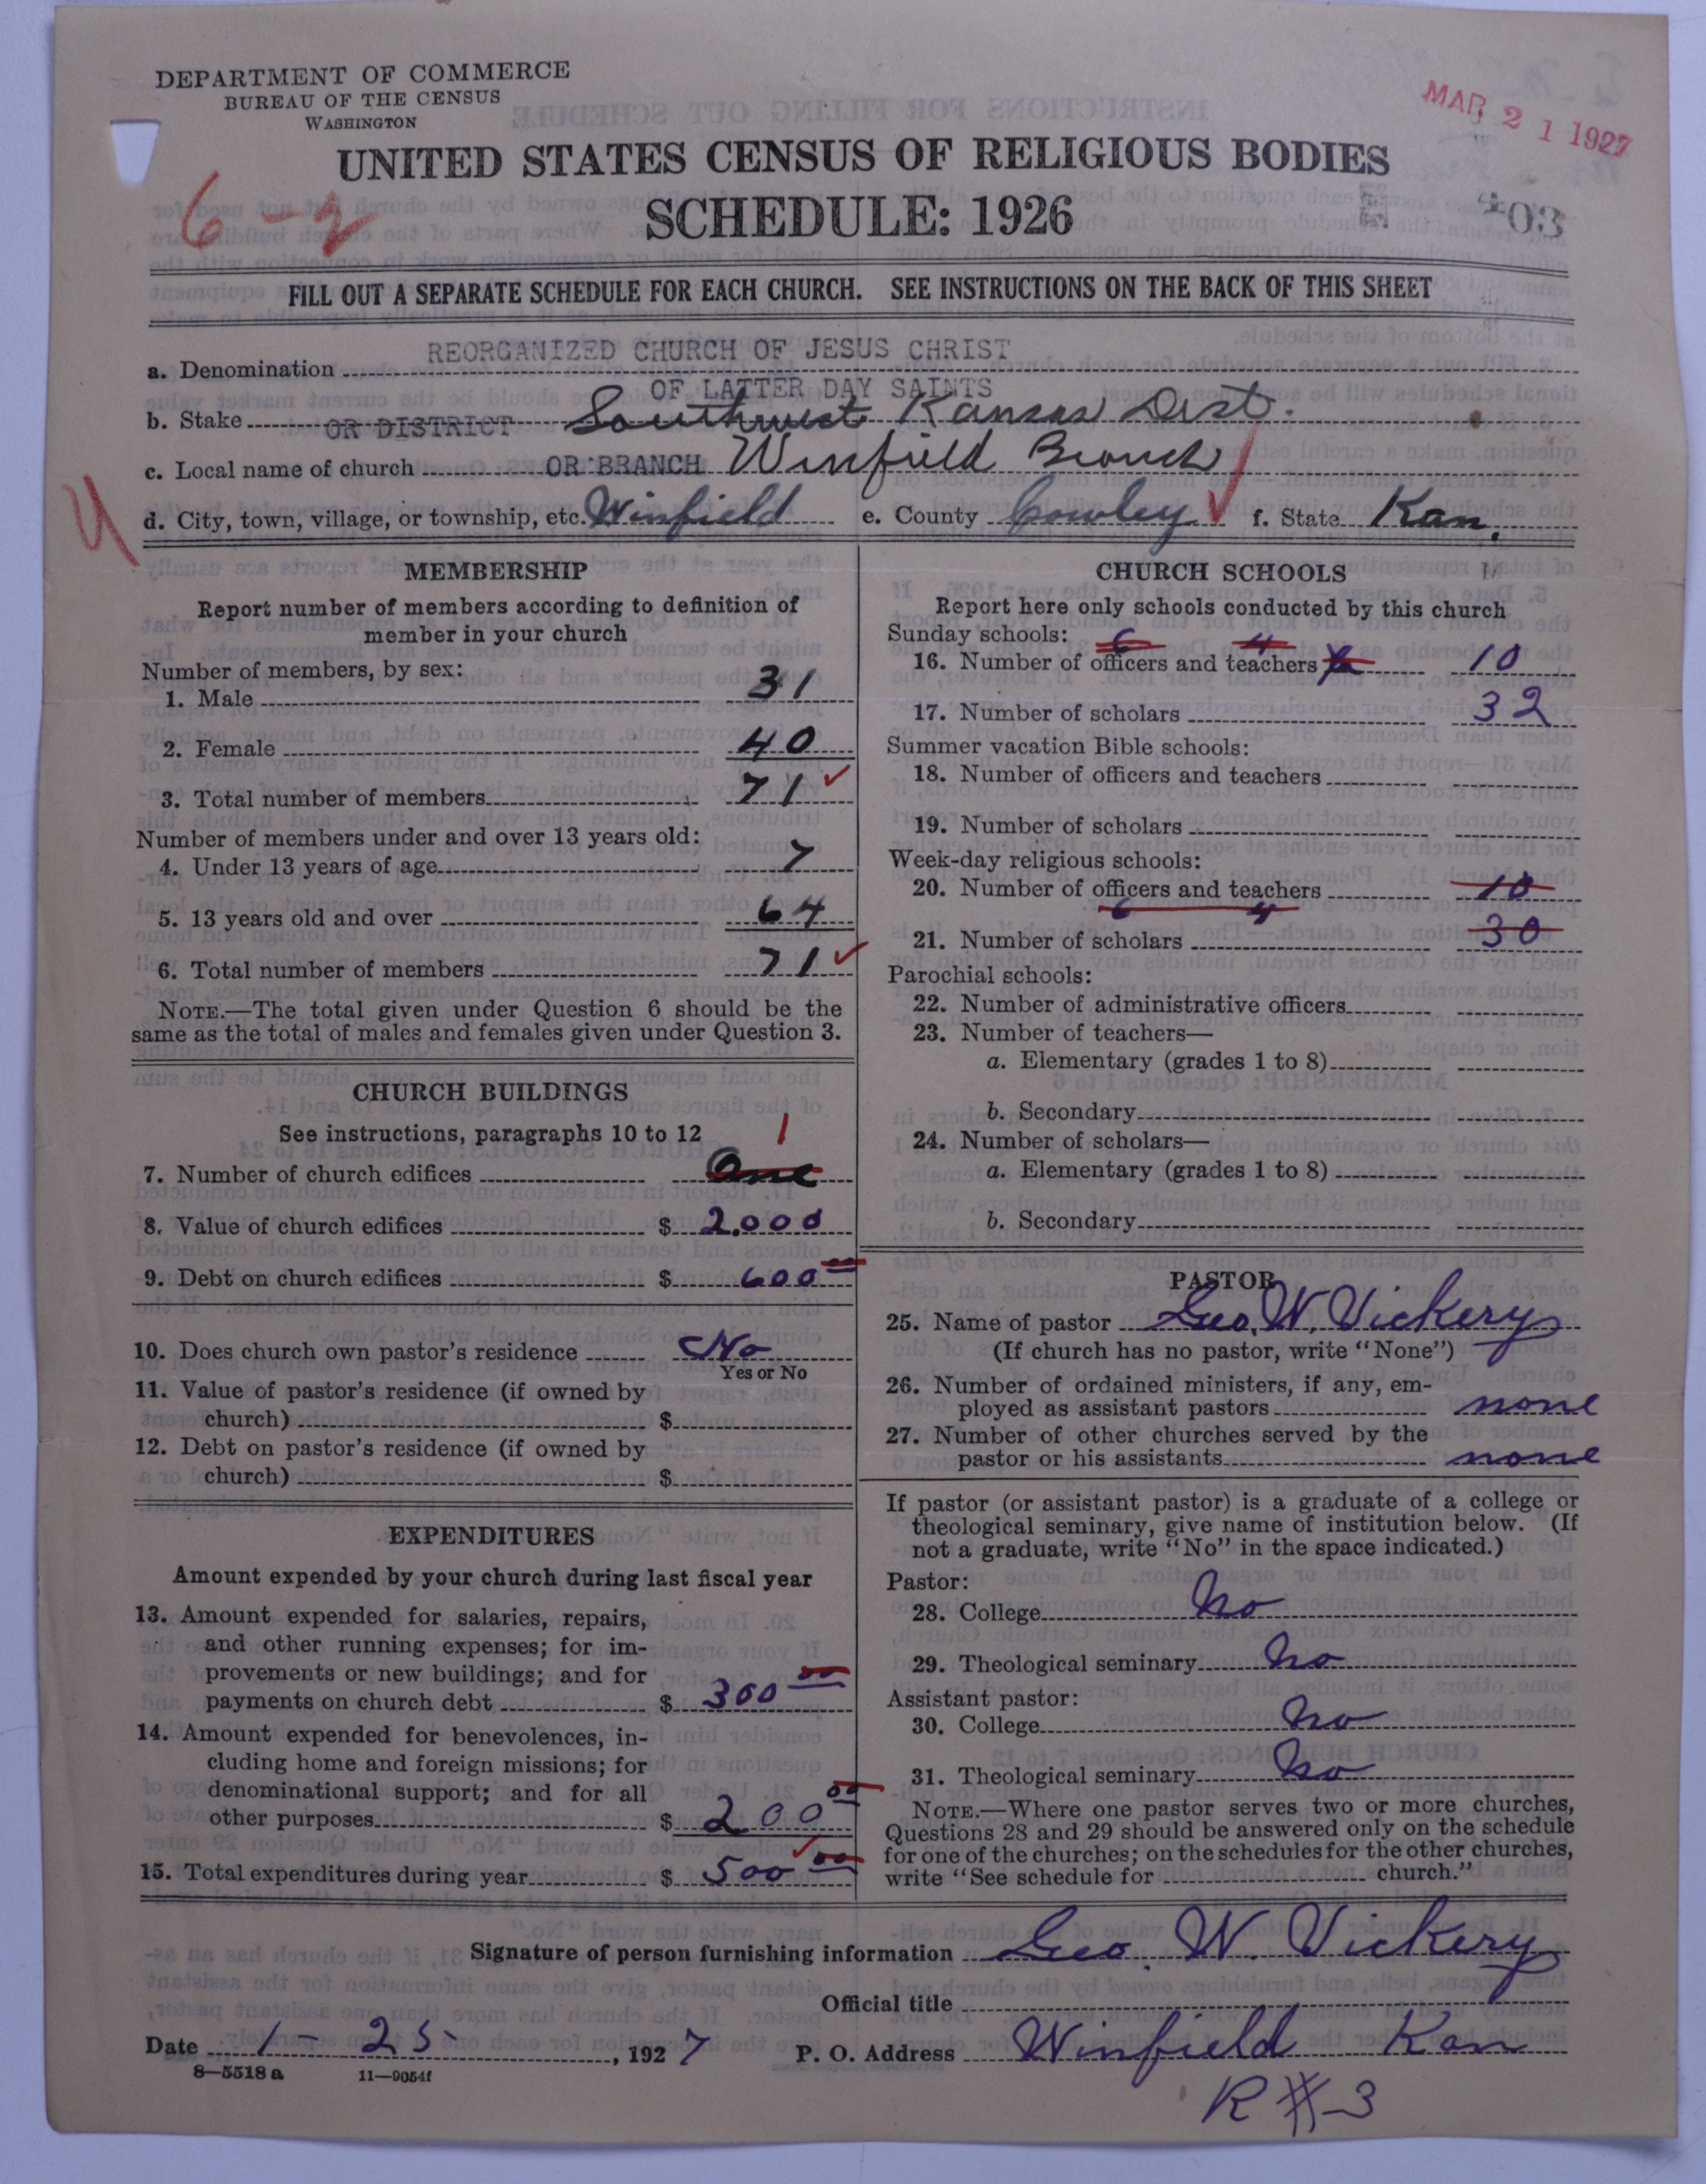 DEPARTMENT OF COMMERCE
BUREAU OF THE CENSUS
WASHINGTON
MAR 21 1927
UNITED STATES CENSUS OF RELIGIOUS BODIES
6-2
SCHEDULE: 1926
403
FILL OUT A SEPARATE SCHEDULE FOR EACH CHURCH. SEE INSTRUCTIONS ON THE BACK OF THIS SHEET
a. Denomination REORGANIZED CHURCH OF JESUS CHRIST
OF LATTER DAY SAINTS
b. Stake OR DISTRICT Southwest Kansas Dist.
c. Local name of church OR BRANCH Winfield Branch
d. City, town, village, or township, etc. Winfield e. County Cowley ✓ f. State Kan.
MEMBERSHIP
Report number of members according to definition of
member in your church
Number of members, by sex:
1. Male 31
2. Female 40
3. Total number of members 71 ✓
Number of members under and over 13 years old:
4. Under 13 years of age 7
5. 13 years old and over 64
6. Total number of members 71 ✓
NOTE.—The total given under Question 6 should be the
same as the total of males and females given under Question 3.
CHURCH BUILDINGS
See instructions, paragraphs 10 to 12
1
7. Number of church edifices One
8. Value of church edifices $ 2,000
9. Debt on church edifices $ 600 00
10. Does church own pastor's residence No
Yes or No
11. Value of pastor's residence (if owned by
church) $
12. Debt on pastor's residence (if owned by
church) $
EXPENDITURES
Amount expended by your church during last fiscal year
13. Amount expended for salaries, repairs,
and other running expenses; for im-
provements or new buildings; and for
payments on church debt $ 300 00
14. Amount expended for benevolences, in-
cluding home and foreign missions; for
denominational support; and for all
other purposes $ 200 00
15. Total expenditures during year $ 500 00
CHURCH SCHOOLS
Report here only schools conducted by this church
Sunday schools: 6 4
16. Number of officers and teachers 10
17. Number of scholars 32
Summer vacation Bible schools:
18. Number of officers and teachers
19. Number of scholars
Week-day religious schools:
20. Number of officers and teachers 10
6 4
21. Number of scholars 30
Parochial schools:
22. Number of administrative officers
23. Number of teachers—
a. Elementary (grades 1 to 8)
b. Secondary
24. Number of scholars—
a. Elementary (grades 1 to 8)
b. Secondary
PASTOR
25. Name of pastor Geo. W. Vickery
(If church has no pastor, write "None")
26. Number of ordained ministers, if any, em-
ployed as assistant pastors none
27. Number of other churches served by the
pastor or his assistants none
If pastor (or assistant pastor) is a graduate of a college or
theological seminary, give name of institution below. (If
not a graduate, write "No" in the space indicated.)
Pastor:
28. College No
29. Theological seminary No
Assistant pastor:
30. College No
31. Theological seminary No
NOTE.—Where one pastor serves two or more churches,
Questions 28 and 29 should be answered only on the schedule
for one of the churches; on the schedules for the other churches,
write "See schedule for church."
Signature of person furnishing information Geo. W. Vickery
Official title
Date 1-25-, 1927 P. O. Address Winfield Kan
8—5518 a 11—9054f
R#3